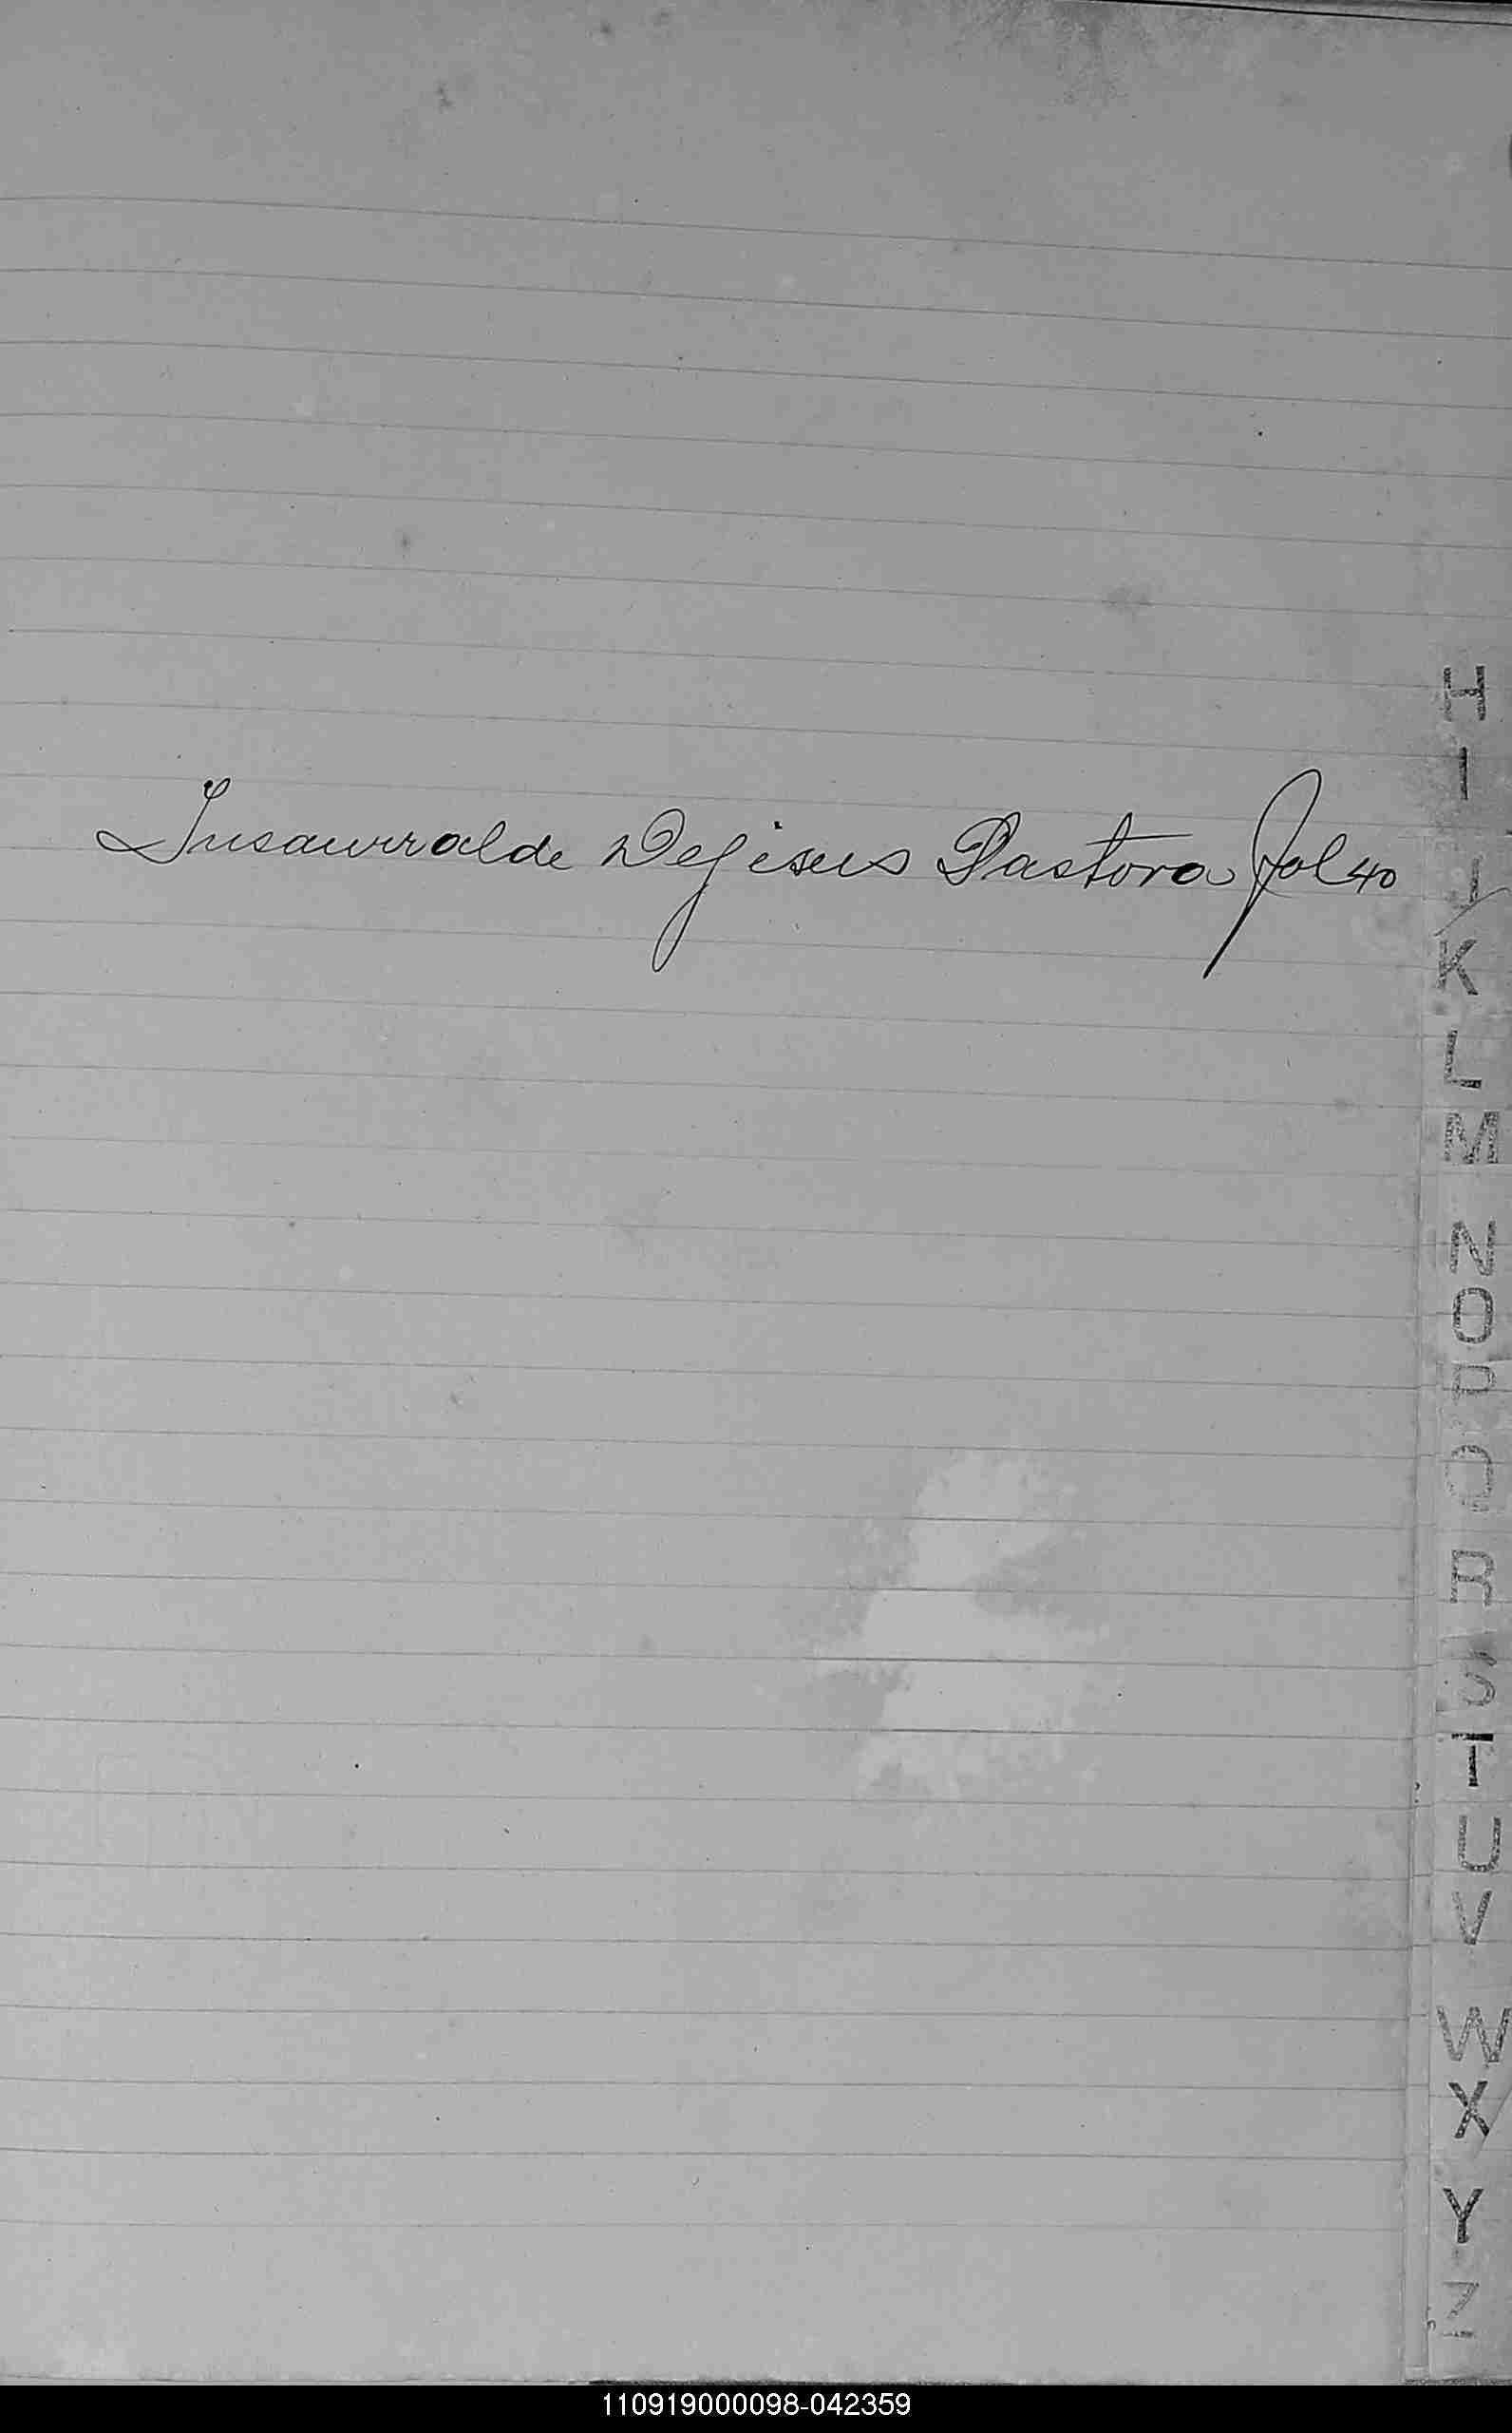 Insaurralde Dejesus Pastora fol 40
H
I
J
K
L
M
N
O
P
Q
R
S
T
U
V
W
X
Y
Z
110919000098-042359